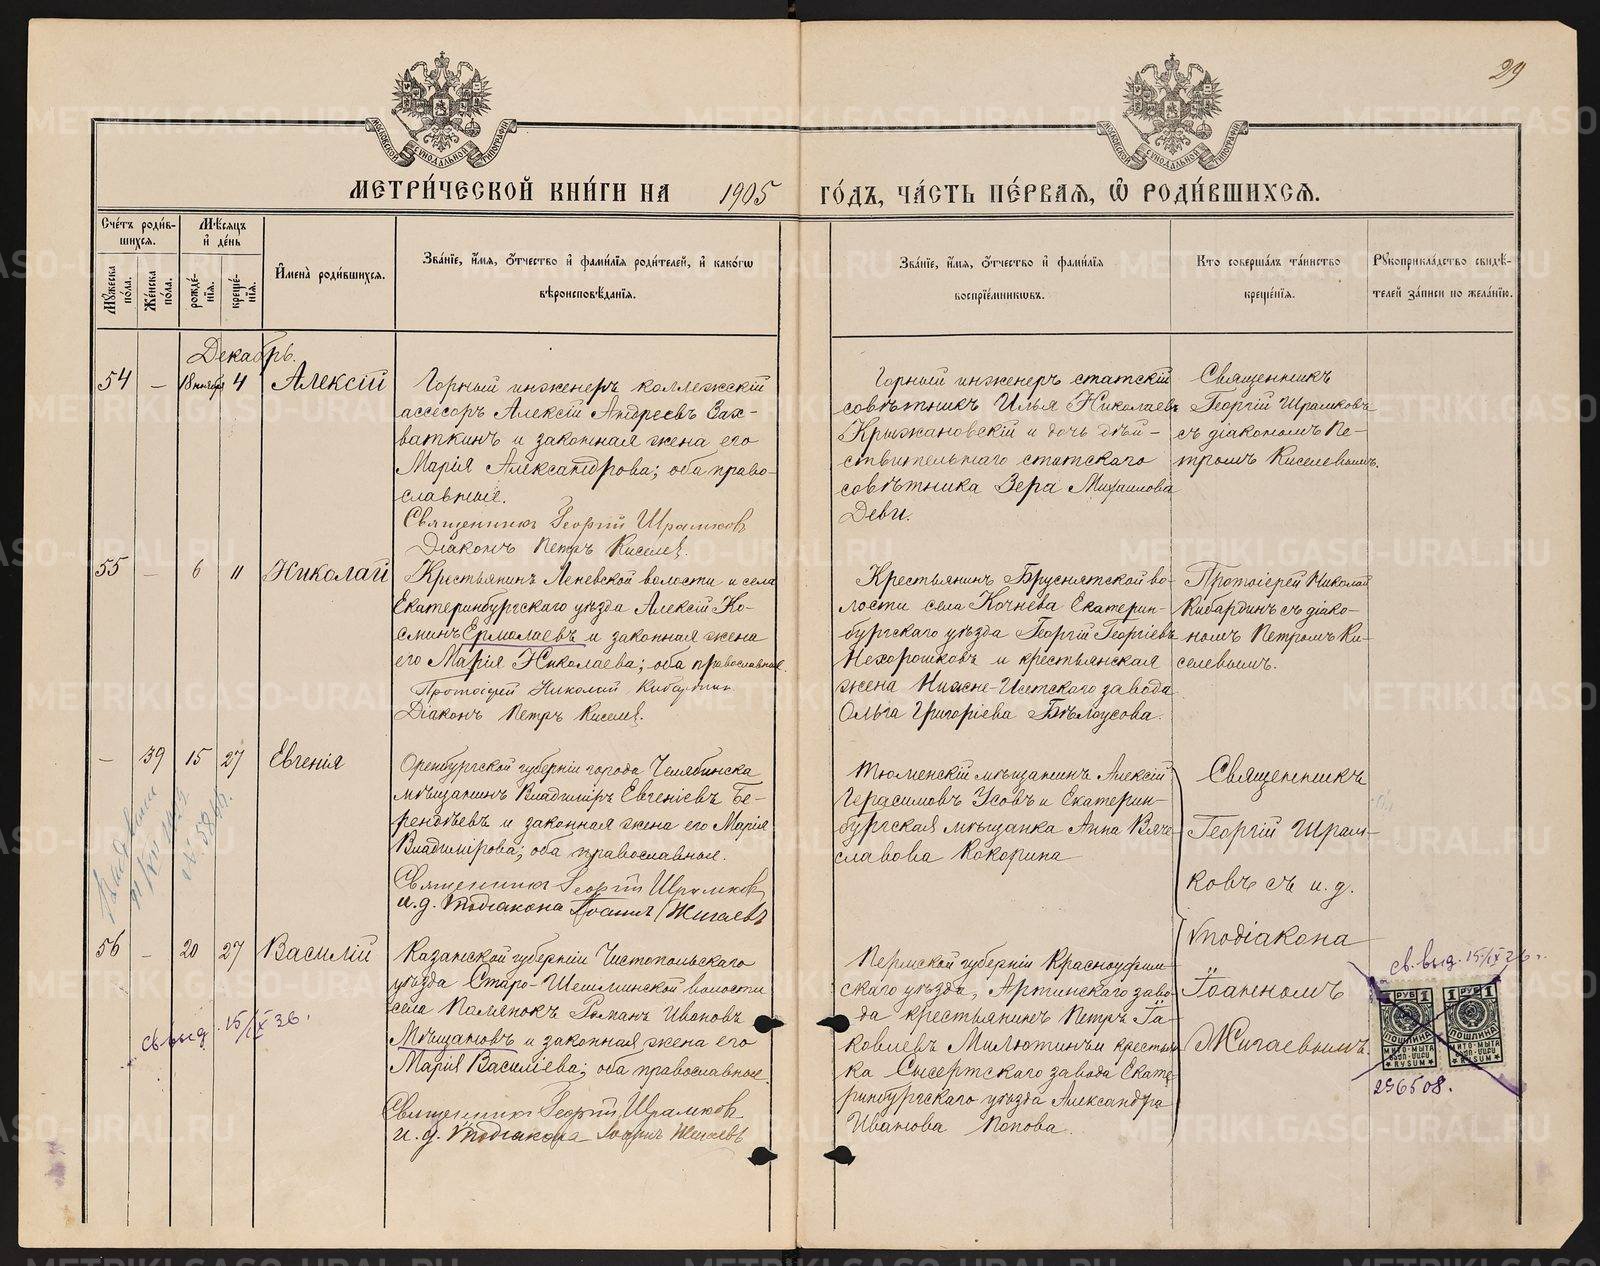 29
МОСКОВСКОЙ СѴНОДАЛЬНОЙ ТИПОГРАФІИ
МОСКОВСКОЙ СѴНОДАЛЬНОЙ ТИПОГРАФІИ
МЕТРИ́ЧЕСКОЙ КНИ́ГИ НА 1905 ГО́ДЪ, ЧА́СТЬ ПЕ́РВАЯ, Ѿ РОДИ́ВШИХСЯ.
Сче́тъ роди́в-
шихся.
Му́жеска по́ла.
Же́нска по́ла.
Мѣ́сяцъ
и҆ де́нь
рожде́-
нїя.
креще́-
нїя.
И҆мена̀ роди́вшихся.
Зва́нїе, и҆́мя, ѻ҆́тчество и҆ фами́лїя роди́телей, и҆ како́гѡ
вѣроисповѣ́данїя.
Зва́нїе, и҆́мя, ѻ҆́тчество и҆ фами́лїя
воспрїе́мникѡвъ.
Кто соверша́лъ та́инство
креще́нїя.
Рꙋкоприкла́дство свидѣ́-
телей за́писи по жела́нїю.
Декабрь.
54 — 18 ноября 4 Алексій
Горный инженеръ коллежскій
ассесоръ Алексій Андреевъ Зах-
ваткинъ и законная жена его
Марія Александрова; оба право-
славные.
Священникъ Георгій Шрамковъ
Діаконъ Петръ Киселев.
Горный инженеръ статскій
совѣтникъ Илья Николаевъ
Крыжановскій и дочь дѣй-
ствительнаго статскаго
совѣтника Вера Михаилова
Деви.
Священникъ
Георгій Шрамковъ
съ діакономъ Пе-
тромъ Киселевымъ.
55 — 6 11 Николай
Крестьянинъ Леневской волости и села
Екатеринбургскаго уѣзда Алексій Ко-
сминъ Ермолаевъ и законная жена
его Марія Николаева; оба православные.
Протоіерей Николай Кибардинъ
Діаконъ Петръ Киселев.
Крестьянинъ Бруснятской во-
лости села Кочнева Екатерин-
бургскаго уѣзда Георгій Георгіевъ
Нехорошковъ и крестьянская
жена Нижне-Исетскаго завода
Ольга Григоріева Бѣлоусова.
Протоіерей Николай
Кибардинъ съ діако-
номъ Петромъ Ки-
селевымъ.
— 39 15 27 Евгенія
Оренбургской губерніи города Челябинска
мѣщанинъ Владиміръ Евгеніевъ Бе-
рендѣевъ и законная жена его Марія
Владимірова; оба православные.
Священникъ Георгій Шрамковъ
и.д. Ѵподіакона Іоаннъ Жигаевъ
Тюменскій мѣщанинъ Алексій
Герасимовъ Усовъ и Екатерин-
бургская мѣщанка Анна Вяче-
славова Кокорина
Священникъ
Георгій Шрам-
ковъ съ и.д.
Ѵподіакона
Іоанномъ
Жигаевымъ.
56 — 20 27 Василій
Казанской губерніи Чистопольскаго
уѣзда Старо-Шешминской волости
села Полянокъ Романъ Ивановъ
Мѣщановъ и законная жена его
Марія Василіева; оба православные.
Священникъ Георгій Шрамков
и.д. Ѵподіакона Іоаннъ Жигаевъ
Пермской губерніи Красноуфим-
скаго уѣзда, Артинскаго заво-
да крестьянинъ Петръ Іа-
ковлевъ Милютинъ и крестьян-
ка Сысертскаго завода Екате-
ринбургскаго уѣзда Александра
Иванова Попова.
св. выд. 15/IX 36.
св. выд. 15/IX 36.
1 РУБ 1
ПОШЛИНА
МИТО-МЫТА
RVSUM
1 РУБ 1
ПОШЛИНА
МИТО-МЫТА
RVSUM
296508.
METRIKI.GASO-URAL.RU